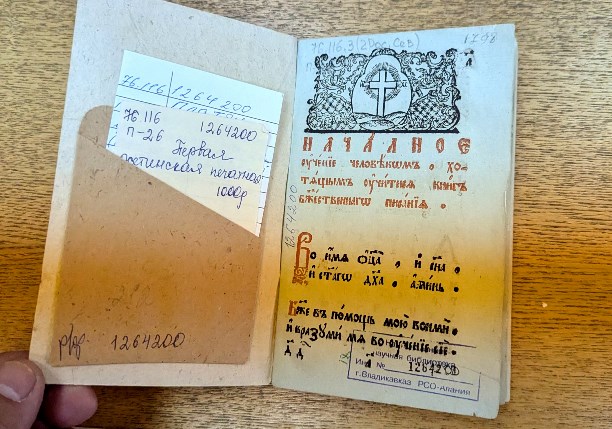 76 116 1264200
76 116 1264200
П-26 Первая
осетинская печатная
1000д
р/ф 1264200
76.116.3(2Рос.Сев)
1798
1264200
НАЧАЛНОЕ
ᲂу҆че́нїе человѣ́кѡмъ , хо-
тѧ́щымъ ᲂу҆чи́тисѧ кни́гъ
бжⷭ҇твеннагѡ писа́нїѧ .
Во и҆́мѧ ѻ҆ц҃а̀ , и҆ сн҃а ,
и҆ ст҃а́гѡ дх҃а . а҆ми́нь .
Бж҃е въ по́мощь мою̀ вонми̑ ,
и҆ вразꙋми́ мѧ во ᲂу҆че́нїе сїѐ
научная библиотека
Инв № 1264200
г.Владикавказ РСО-Алания